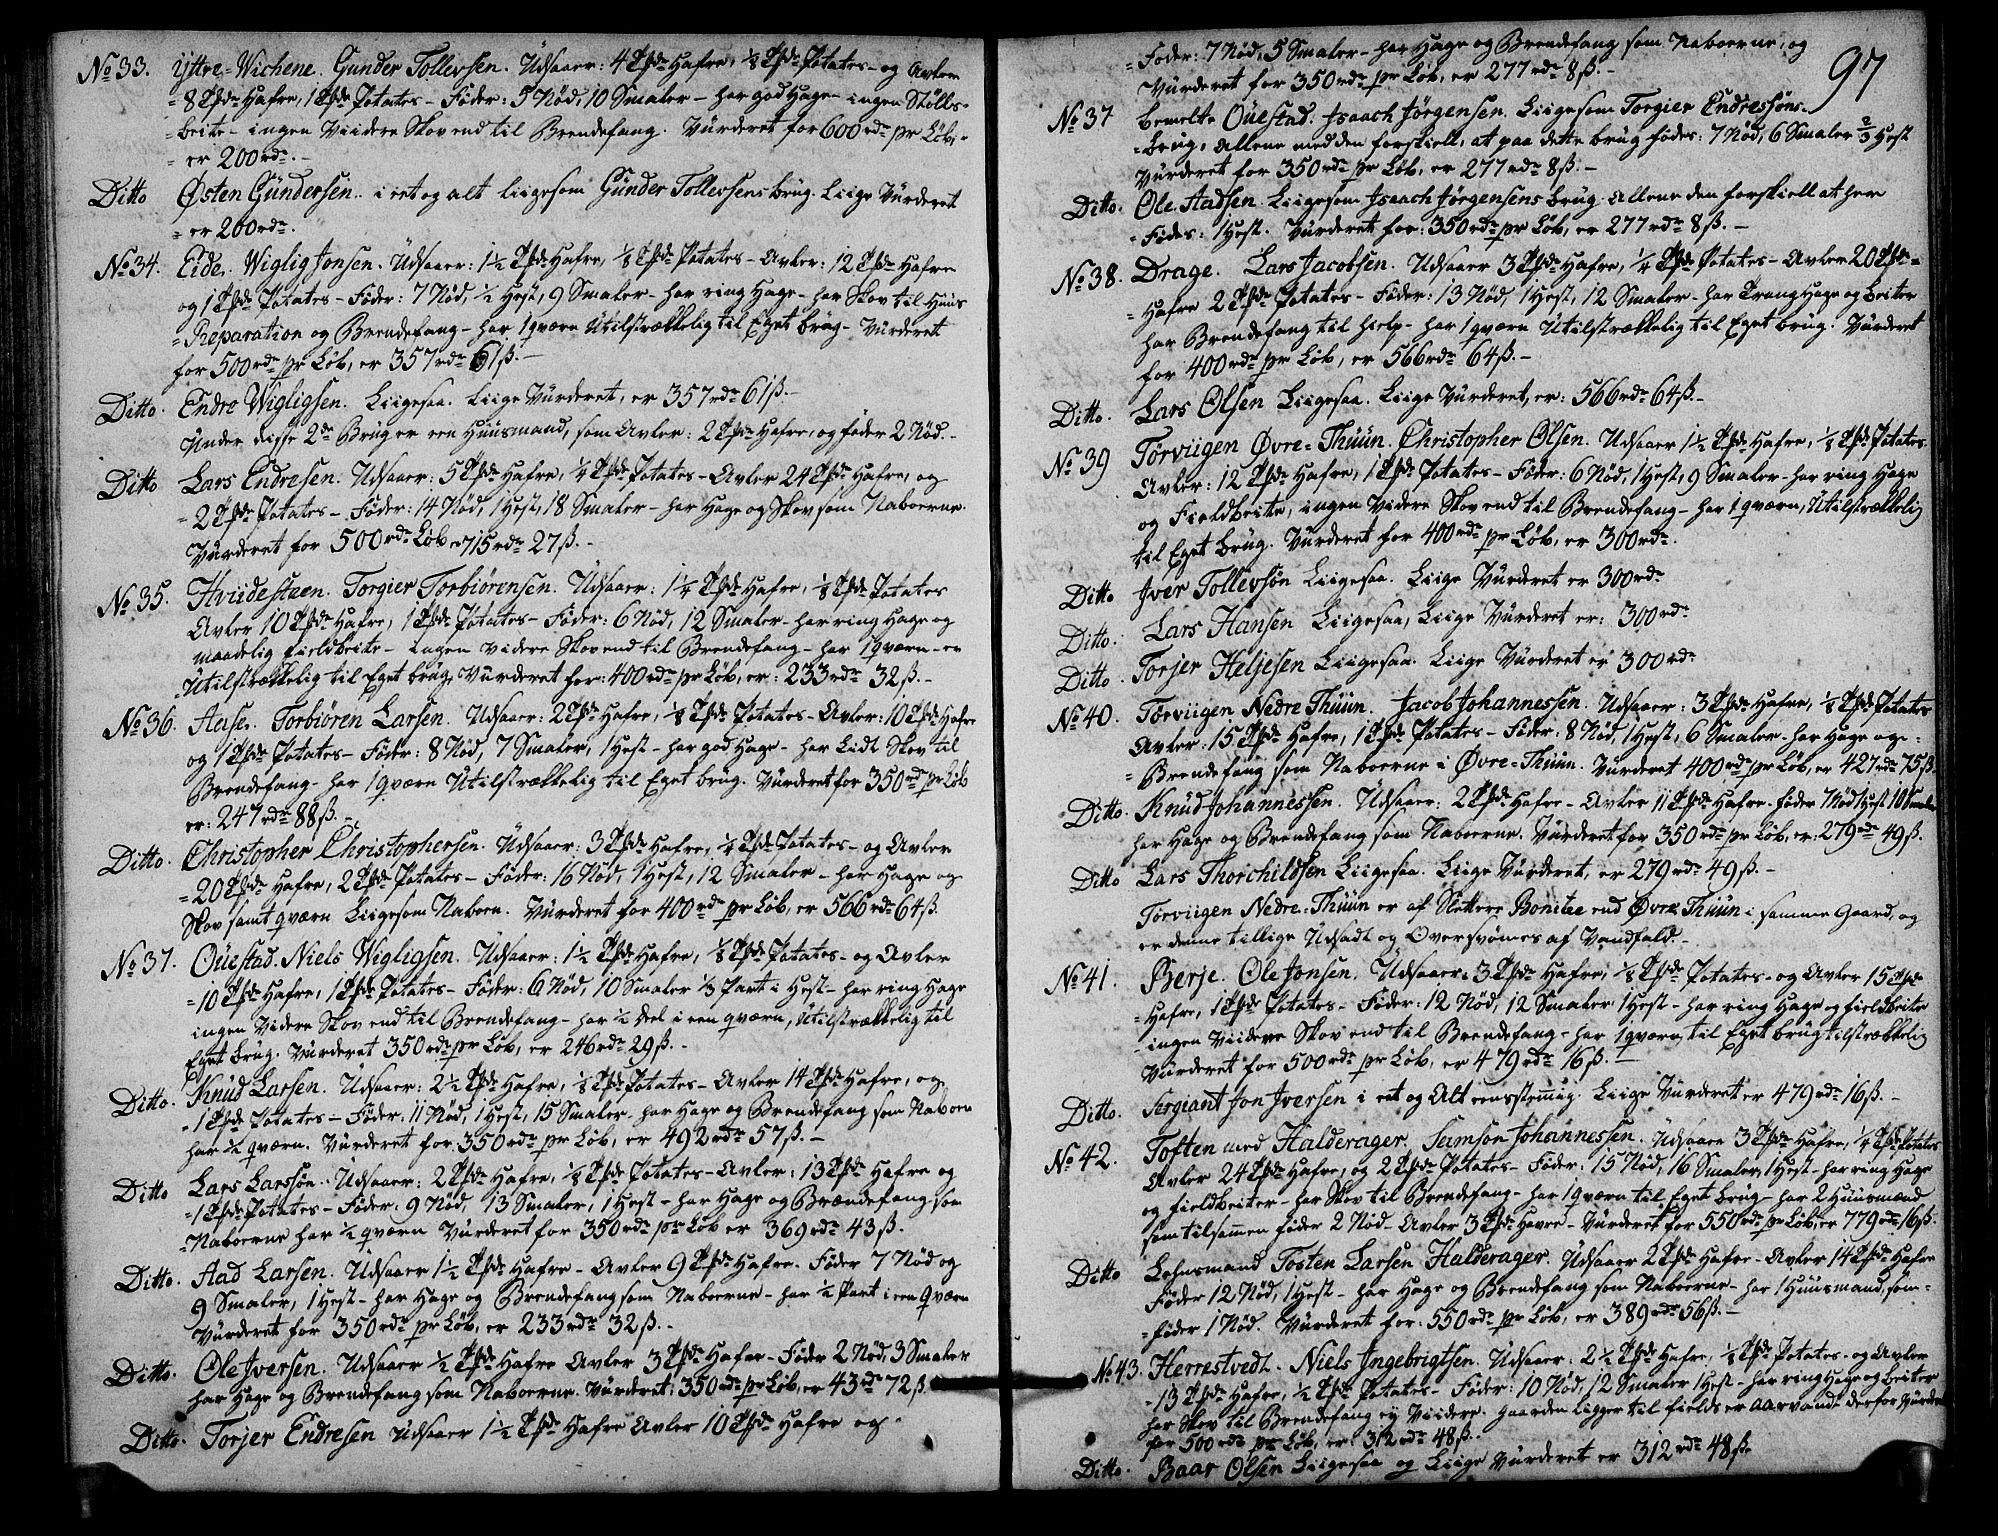 No 33. Yttre-Wichene. Gunder Tollevsen. Udsaaer: 4 Tønder Hafre, 1/8 Tønde Potates - og Avler
= 8 Tønder Hafre, 1 Tønde Potates - Føder: 5 Nød, 10 Smaler - har god Hage - ingen Stølls-
= beite - ingen Viidere Skov end til Brendefang. Vurderet for 600 rdr pr Løb,
= er 200 rdr. -
Ditto Østen Gundersen. i eet og alt liigesom Gunder Tollevsens brug. Liige Vurderet
= er 200 rdr.
No 34. Eide. Wiglig Jonsen. Udsaaer: 1 1/2 Tønde Hafre, 1/8 Tønde Potates - Avler: 12 Tønder Hafre
og 1 Tønde Potates - Føder: 7 Nød, 1/2 Hest, 9 Smaler - har ring Hage - har Skov til Huus
= Reparation og Brendefang - har 1 qværn Utilstrækkelig til Eget brug - Vurderet
for 500 rdr pr Løb, er 357 rdr 61 ß. -
Ditto. Endre Wigligsen. Liigesaa. Liige Vurderet, er 357 rdr 61 ß. -
Under disse 2de Brug er een Huusmand, som Avler: 2 Tønder Hafre, og føder 2 Nød. -
Ditto Lars Endresen. Udsaaer: 5 Tønder Hafre, 1/4 Tønde Potates - Avler 24 Tønder Hafre, og
= 2 Tønder Potates - Føder: 14 Nød, 1 Hest, 18 Smaler - har Hage og Skov som Naboerne.
Vurderet for 500 rdr Løb er 715 rdr 27 ß. -
No 35. Hviidesteen. Torgier Torbiørensen. Udsaaer: 1 1/4 Tønde Hafre, 1/8 Tønde Potates
Avler 10 Tønder Hafre, 1 Tønde Potates - Føder: 6 Nød, 12 Smaler - har ring Hage og
maadelig fieldbeite - Ingen videre Skov end til Brendefang - har 1 qværn - er
Utilstrækkelig til Eget brug, Vurderet for: 400 rdr pr Løb, er: 233 rdr 32 ß. -
No 36. Aase. Torbiøren Larsen. Udsaaer: 2 Tønder Hafre, 1/8 Tønde Potates - Avler: 10 Tønder Hafre
og 1 Tønde Potates - Føder: 8 Nød, 7 Smaler, 1 Hest - har god Hage - har Lidt Skov til
Brendefang - har 1 qværn Utilstrækkelig til Eget brug. Vurderet for 350 rdr pr Løb
er: 247 rdr 88 ß. -
Ditto. Christopher Christophersen. Udsaaer: 3 Tønder Hafre, 1/4 Tønde Potates - og Avler
= 20 Tønder Hafre, 2 Tønder Potates - Føder: 16 Nød, 1 Hest, 12 Smaler - har Hage og
Skov samt qværn Liigesom Naboen. Vurderet for 400 rdr pr Løb, er 566 rdr 64 ß.
No 37. Ouestad. Niels Wigligsen. Udsaaer: 1 1/2 Tønde Hafre, 1/8 Tønde Potates - og Avler
= 10 Tønder Hafre, 1 Tønde Potates - Føder: 6 Nød, 10 Smaler 1/3 Part i Hest - har ring Hage
ingen Videre Skov end til Brendefang - har 1/4 Deel i een qværn, Utilstrækkelig til
Eget brug. Vurderet 350 rdr pr Løb, er 246 rdr 29 ß. -
Ditto. Knud Larsen. Udsaaer: 2 1/2 Tønde Hafre, 1/8 Tønde Potates - Avler 14 Tønder Hafre, og
- 1 Tønde Potates - Føder: 11 Nød, 1 Hest, 15 Smaler - har Hage og Brendefang som Naboen
har 1/4 qværn. Vurderet for 350 rdr pr Løb, er 492 rdr 57 ß. -
Ditto Lars Larssøn. Udsaaer: 2 Tønder Hafre, 1/8 Tønde Potates - Avler: 13 Tønder Hafre og
= 1 Tønde Potates - Føder: 9 Nød, 13 Smaler, 1 Hest - har Hage og Brændefang som
= Naboerne har 1/4 qværn Vurderet for 350 rdr pr Løb er 369 rdr 43 ß.
Ditto. Aad Larsen. Udsaaer 1 1/2 Tønde Hafre - Avler 9 Tønder Hafre. Føder 7 Nød og
9 Smaler, 1 Hest - har Hage og Brendefang som Naboerne - har 1/4 Part i een Qværn
Vurderet for 350 rdr pr Løb, er 233 rdr 32 ß. -
Ditto. Ole Iversen. Udsaaer 1/2 Tønde Hafre Avler 3 Tønder Hafre - Føder 2 Nød, 3 Smaler
har Hage og Brendefang som Naboerne. Vurderet: 350 rdr pr Løb, er 43 rdr 72 ß.
Ditto. Torjer Endresen Udsaaer 1 1/2 Tønde Hafre Avler 10 Tønder Hafre og.
97
= Føder: 7 Nød, 5 Smaler - har Hage og Brendefang som Naboerne, og
Vurderet for 350 rdr pr Løb, er 277 rdr 8 ß. -
No 37 bemelte Ouestad. Isaach Jørgensen. Liigesom Torgier Endressøns
= brug, Allene med den forskiell, at paa dette brug fødes: 7 Nød, 6 Smaler 2/3 Hest
Vurderet for 350 rdr pr Løb, er 277 rdr 8 ß. -
Ditto. Ole Aadsen. Liigesom Isaach Jørgensens brug Allene den forskiell at her
= Fødes: 1 Hest. Vurderet for: 350 rdr pr Løb, er 277 rdr 8 ß. -
No 38. Drage. Lars Jacobsen. Udsaaer 3 Tønder Hafre, 1/4 Tønde Potates - Avler 20 Tønder =
= Hafre 2 Tønder Potates - Føder: 13 Nød, 1 Hest, 12 Smaler - har Trang Hage og beiter
har Brendefang til hielp - har 1 qværn Utilstrækkelig til Eget brug. Vurderet
for 400 rdr pr Løb, er 566 rdr 64 ß. -
Ditto. Lars Olsen Liigesaa. Liige Vurderet, er: 566 rdr 64 ß. -
No 39 Torviigen Øvre-Thuun. Christopher Olsen. Udsaaer 1 1/2 Tønde Hafre, 1/8 Tønde Potates
Avler: 12 Tønder Hafre, 1 Tønde Potates - Føder: 6 Nød, 1 Hest, 9 Smaler - har ring Hage
og Fieldbeite, ingen Videre Skov end til Brendefang - har 1 qværn, Utilstrækkelig
til Eget brug. Vurderet for 400 rdr pr Løb, er 300 rdr.
Ditto Iver Tollevsøn Liigesaa. Liige Vurderet er 300 rdr
Ditto. Lars Hansen Liigesaa, Liige Vurderet er: 300 rdr
Ditto Torjer Heljesen Liigesaa. Liige Vurderet er 300 rdr
No 40. Torviigen. Nedre Thuun. Jacob Johannessen. Udsaaer: 3 Tønder Hafre, 1/8 Tønde Potates
Avler: 15 Tønder Hafre, 1 Tønde Potates - Føder: 8 Nød, 1 Hest, 6 Smaler - har Hage og =
= Brendefang som Naboerne i Øvre-Thuun. Vurderet 400 rdr pr Løb, er 427 rdr 75 ß.
Ditto. Knud Johannessen. Udsaaer: 2 Tønder Hafre - Avler 11 Tønder Hafre. føder 7 Nød 1 Hest 10 Smaler
har Hage og Brendefang som Naboerne. Vurderet for 350 rdr pr Løb, er: 279 rdr 49 ß.
Ditto Lars Thorchildsen Liigesaa. Liige Vurderet, er 279 rdr 49 ß. -
Torviigen Nedre-Thuun er af Slettere Bonitee end Øvre Thuun i samme Gaard, og
er denne tillige Udsadt og Oversvømes af Vandfald. -
No 41. Berje. Ole Jonsen. Udsaaer: 3 Tønder Hafre, 1/8 Tønde Potates - og Avler 15 Tønder
= Hafre, 1 Tønde Potates - Føder: 12 Nød, 12 Smaler 1 Hest - har ring Hage og fieldbeite
- ingen Viidere Skov end til Brendefang - har 1 qværn til Eget brug tilstrækkelig
Vurderet for 500 rdr pr Løb, er 479 rdr 16 ß. -
Ditto. Sergiant Jon Iversen i eet og Alt eenstemig. Liige Vurderet er 479 rdr 16 ß. -
No 42. Toften med Halderager. Samson Johannessen. Udsaaer 3 Tønder Hafre, 1/4 Tønde Potates
Avler 24 Tønder Hafre, og 2 Tønder Potates - Føder: 15 Nød, 16 Smaler, 1 Hest - har ring Hage
og fieldbeiter - har Skov til Brendefang - har 1 qværn til Eget brug - har 2 Huusmænd
som tilsamen føder 2 Nød - Avler 3 Tønder Havre - Vurderet for 550 rdr pr Løb, er 779 rdr 16 ß.
Ditto Lehnsmand Tosten Larsen Halderager. Udsaaer 2 Tønder Hafre - Avler 14 Tønder Hafre
Føder 12 Nød, 1 Hest - har Hage og Brendefang som Naboerne - har 1 Huusmand, som -
= føder 1 Nød. Vurderet for: 550 rdr pr Løb, er 389 rdr 56 ß. -
No 43. Herrestvedt. Niels Ingebrigtsen. Udsaaer: 2 1/2 Tønde Hafre, 1/8 Tønde Potates. og Avler
- 13 Tønder Hafre, 1/2 Tønde Potates - Føder: 10 Nød, 12 Smaler 1 Hest - har ring Hage og beiter
har Skov til Brendefang ey Viidere. Gaarden ligger til fields er Aarvandt derfor Vurderet
for 500 rdr pr Løb, er: 312 rdr 48 ß. -
Ditto. Baar Olsen Liigesaa og Liige Vurderet er 312 rdr 48 ß.